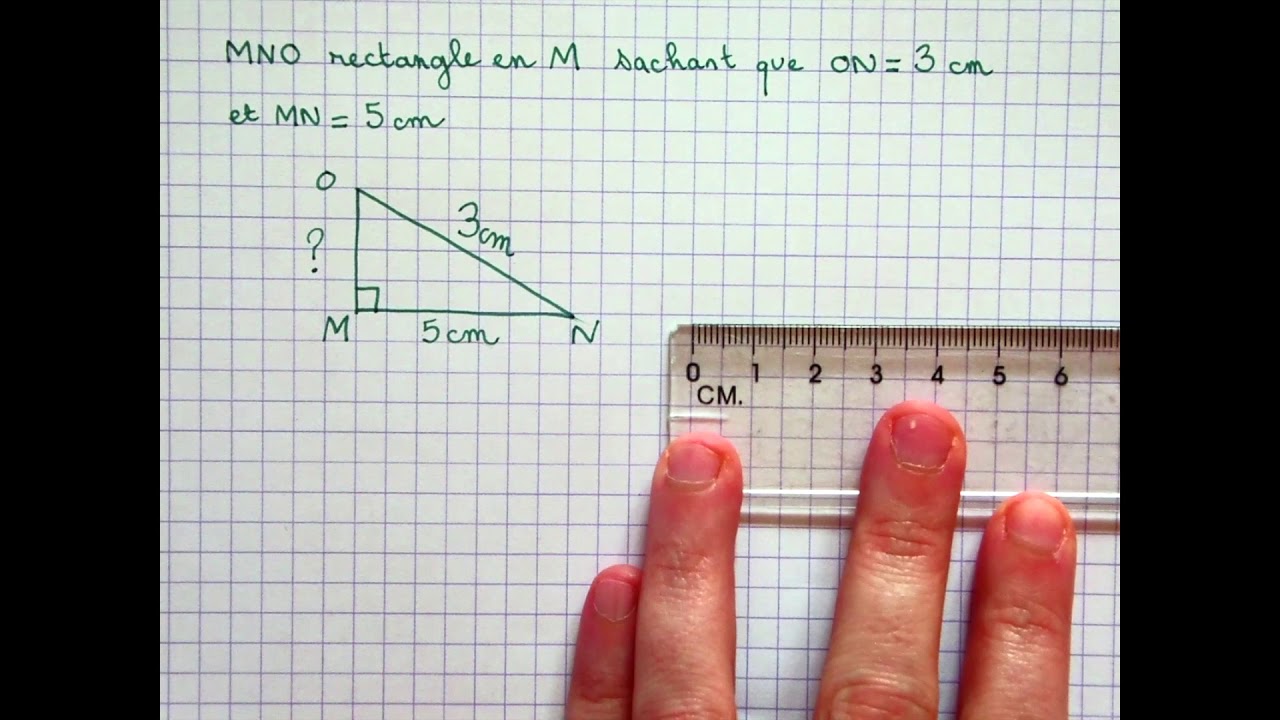 MNO rectangle en M sachant que ON = 3 cm
et MN = 5 cm
O
3 cm
?
M
5 cm
N
0 1 2 3 4 5 6
CM.